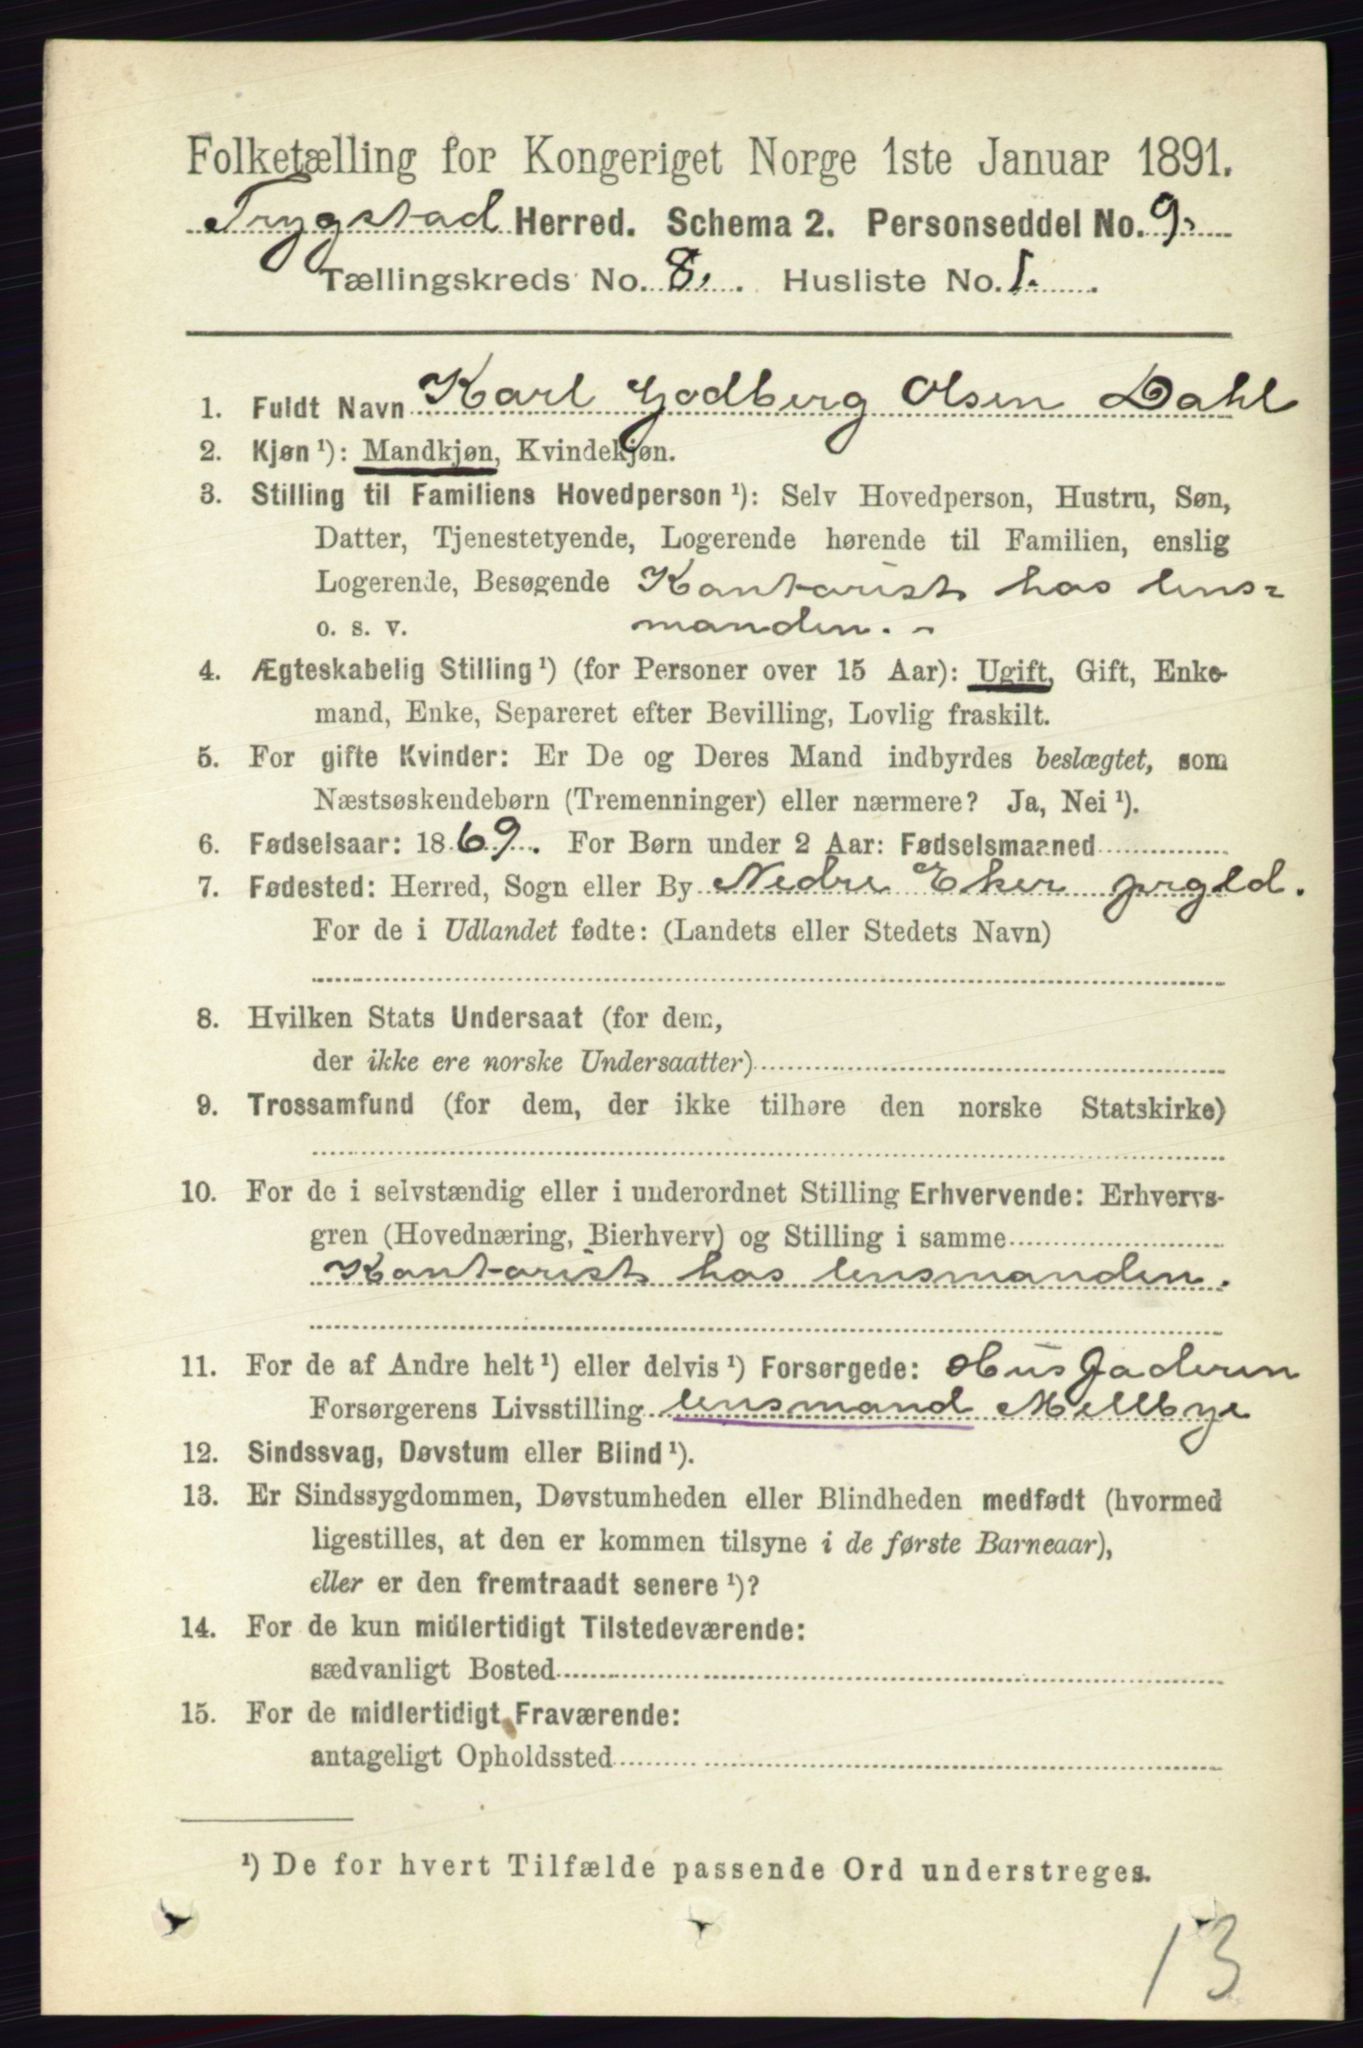 Folketælling for Kongeriget Norge 1ste Januar 1891.
Trygstad Herred. Schema 2. Personseddel No. 9.
Tællingskreds No. 8. Husliste No. 1.
1. Fuldt Navn Karl Godberg Olsen Dahl
2. Kjøn ¹): Mandkjøn, Kvindekjøn.
3. Stilling til Familiens Hovedperson ¹): Selv Hovedperson, Hustru, Søn,
Datter, Tjenestetyende, Logerende hørende til Familien, enslig
Logerende, Besøgende Kontorist hos lens-
o. s. v. manden. -
4. Ægteskabelig Stilling ¹) (for Personer over 15 Aar): Ugift, Gift, Enke-
mand, Enke, Separeret efter Bevilling, Lovlig fraskilt.
5. For gifte Kvinder: Er De og Deres Mand indbyrdes beslægtet, som
Næstsøskendebørn (Tremenninger) eller nærmere? Ja, Nei ¹).
6. Fødselsaar: 1869. For Børn under 2 Aar: Fødselsmaaned
7. Fødested: Herred, Sogn eller By Nedre Eker prgld.
For de i Udlandet fødte: (Landets eller Stedets Navn)
8. Hvilken Stats Undersaat (for dem,
der ikke ere norske Undersaatter)
9. Trossamfund (for dem, der ikke tilhøre den norske Statskirke)
10. For de i selvstændig eller i underordnet Stilling Erhvervende: Erhvervs-
gren (Hovednæring, Bierhverv) og Stilling i samme
Kontorist hos lensmanden.
11. For de af Andre helt ¹) eller delvis ¹) Forsørgede: Husfaderen
Forsørgerens Livsstilling lensmand Mellbye
12. Sindssvag, Døvstum eller Blind ¹).
13. Er Sindssygdommen, Døvstumheden eller Blindheden medfødt (hvormed
ligestilles, at den er kommen tilsyne i de første Barneaar),
eller er den fremtraadt senere ¹)?
14. For de kun midlertidigt Tilstedeværende:
sædvanligt Bosted
15. For de midlertidigt Fraværende:
antageligt Opholdssted
¹) De for hvert Tilfælde passende Ord understreges.
13